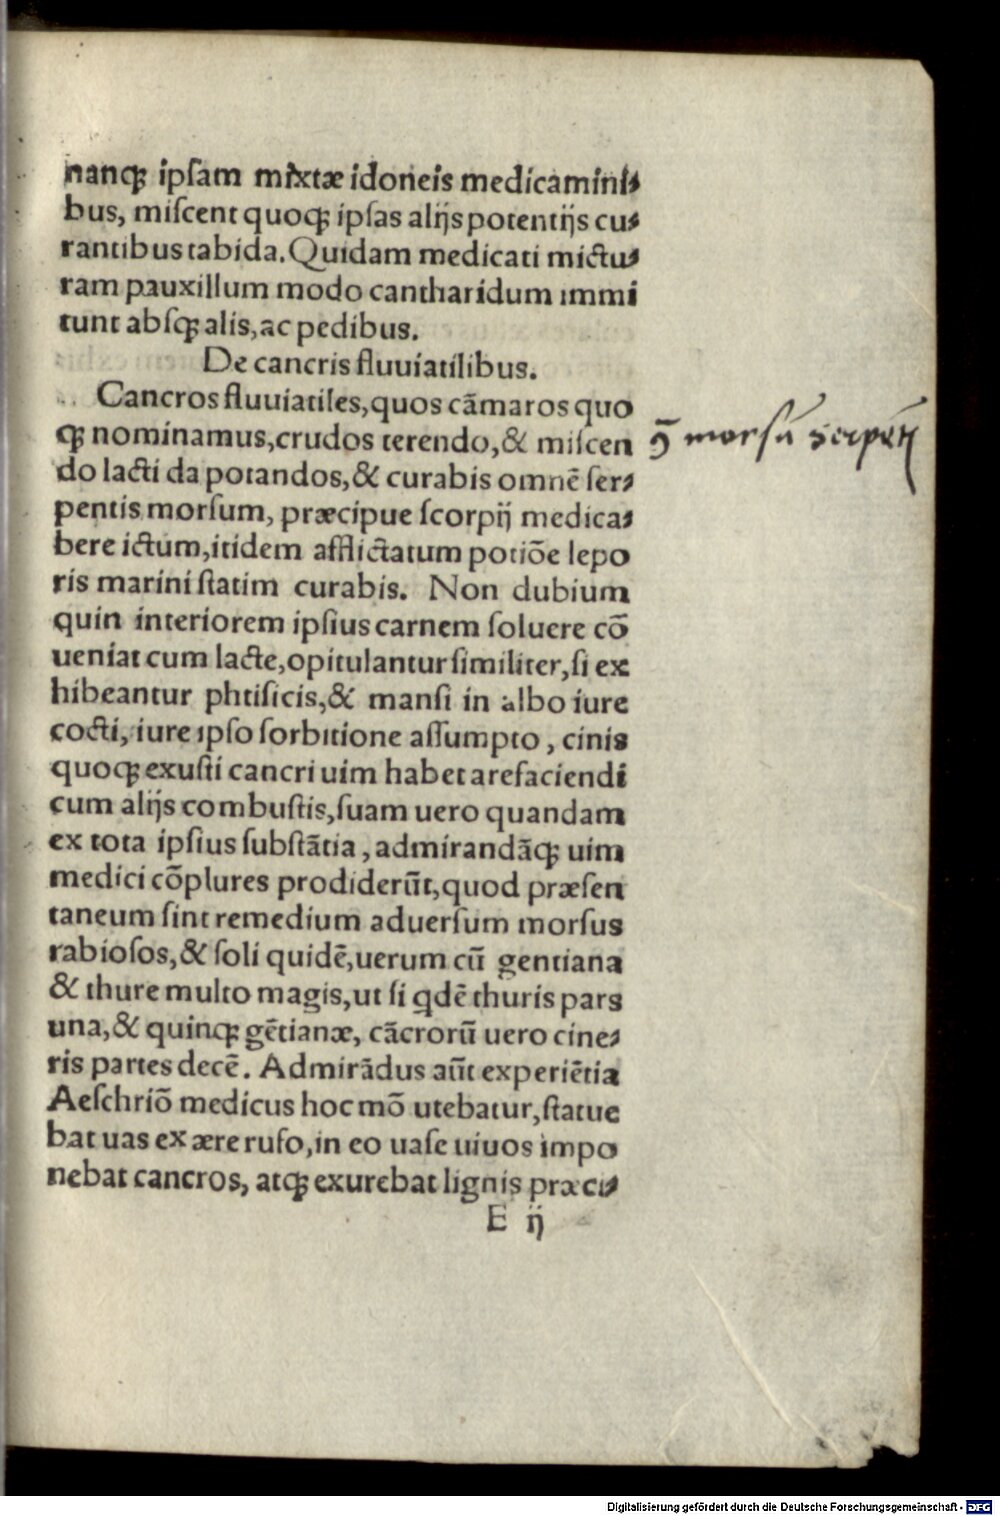 nanq; ipſam mixtæ idoneis medicamini⸗
bus, miſcent quoq; ipſas alijs potentijs cu⸗
rantibus tabida. Quidam medicati mictu⸗
ram pauxillum modo cantharidum immi
tunt abſq; alis, ac pedibus.
De cancris fluuiatilibus.
Cancros fluuiatiles, quos cāmaros quo
q; nominamus, crudos terendo, & miſcen
do lacti da potandos, & curabis omnē ſer⸗
pentis morſum, præcipue ſcorpij medica⸗
bere ictum, itidem afflictatum potiōe lepo
ris marini ſtatim curabis. Non dubium
quin interiorem ipſius carnem ſoluere cō
ueniat cum lacte, opitulantur ſimiliter, ſi ex
hibeantur phtiſicis, & manſi in albo iure
cocti, iure ipſo ſorbitione aſſumpto, cinis
quoq; exuſti cancri uim habet arefaciendi
cum alijs combuſtis, ſuam uero quandam
ex tota ipſius ſubſtātia, admirandāq; uim
medici cōplures prodiderūt, quod præſen
taneum ſint remedium aduerſum morſus
rabioſos, & ſoli quidē, uerum cū gentiana
& thure multo magis, ut ſi qdē thuris pars
una, & quinq; gētianæ, cācrorū uero cine⸗
ris partes decē. Admirādus aūt experiētia
Aeſchriō medicus hoc mō utebatur, ſtatue
bat uas ex ære rufo, in eo uaſe uiuos impo
nebat cancros, atq; exurebat lignis præci⸗
E ij
ꝯ̄ morsū serpen̄t
Digitalisierung gefördert durch die Deutsche Forschungsgemeinschaft - DFG